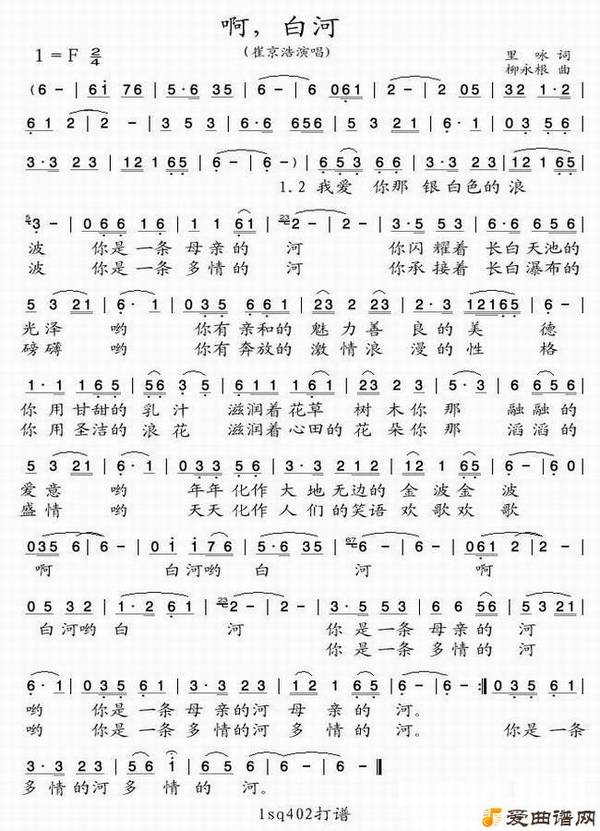 啊，白河
1=F 2/4
(崔京浩演唱)
里 咏 词
柳永根 曲
(6 - | 6i 76 | 5·6 35 | 6 - | 6 061 | 2 - | 2 05 | 32 1·2 |
61 2 | 2 - | 3 5 3 | 6 5 6 | 5 3 21 | 6 - | 0 5 6 1 |
3·3 23 | 12 1 65 | 6 - | 6 -) | 6 5 3 6 6 | 0 1 2 3 | 12 1 65 |
1.2我爱 你那 银白色的浪
3 - | 0 6 6 1 6 | 1·1 1 | 2 - | 3·5 53 | 6·6 6 53 |
波 你是一条 母亲的 河 你闪耀着 长白天池的
波 你是一条 多情的 河 你承接着 长白瀑布的
5 3 21 | 6· 1 | 035 61 | 23 23 | 2·3 | 12165 |
光泽 哟 你有亲和的 魅力善 良的美 德
磅礴 哟 你有奔放的 激情浪 漫的性 格
1·1 | 1 65 | 56 3·5 | 6 1 1 | 1 61 | 23 | 2·3 | 6 656 |
你用甘甜的 乳汁 滋润着花草 树木你那 融融的
你用圣洁的 浪花 滋润着心田的 花朵你那 滔滔的
5 3 21 | 6· 1 | 0335 | 656 | 1·1 6 12 | 3·2 | 12 1 65 | 6 - | 6 0 |
爱意 哟 年年化作 大地无边的 金波金 波
盛情 哟 天天化作 人们的笑语 欢歌欢 歌
035 6 | 6 - | 0 i i 76 | 5·6 35 | 6 - | 6 - | 061 2 | 2 - |
啊 白河哟 白 河 啊
05 32 | 1·2 61 | 2 - | 2 - | 3·5 53 | 6 6 56 | 5 3 21 |
白河哟 白 河 你是一条 母亲的 河
你是一条 多情的 河
6· 1 | 035 61 | 3·3 23 | 12 1 65 | 6 - | 6 - :| 035 61 |
哟 你是一条 母亲的河 母亲的 河。
哟 你是一条 多情的河 多情的 河。 你是一条
3·3 23 | 5 3 56 | 6 - | 6 - |
多情的河 多情的 河。
lsq402打谱
爱曲谱网